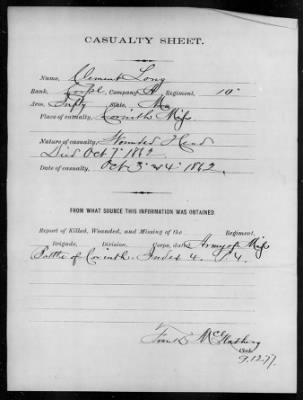 CASUALTY SHEET.
Name, Clement Long
Rank, Corpl Company A Regiment, 10"
Arm, Infty State, Mo
Place of casualty, Corinth Miss
Nature of casualty, Wounded Head
Died Oct 7" 1862
Date of casualty, Oct 3" & 4" 1862.
FROM WHAT SOURCE THIS INFORMATION WAS OBTAINED.
Report of Killed, Wounded, and Missing of the Regiment,
Brigade, Division, Corps, dated Army of Miss
Battle of Corinth. Index 4. 4.
Frank
Clerk.
9.12.77.